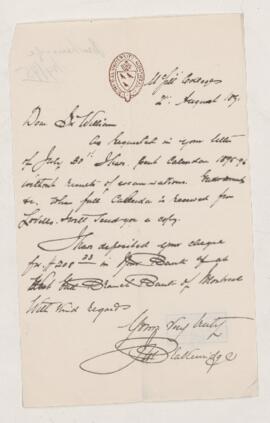 McGill College
August
Dear Sir William
As requested in your letter
of July 30th I have sent Calendar 1895-96
without results of examinations.
&c. When full Calendar is received from
Lovells I will send you a copy.
I have deposited your cheque
for $208 33 in Bank of
West End Branch Bank of Montreal
With kind regards
Yours very truly